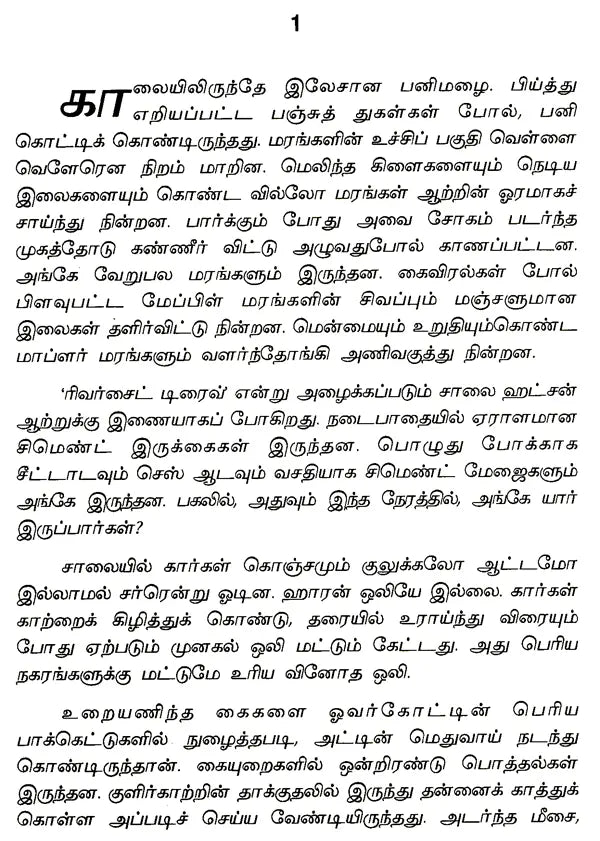 1
காலையிலிருந்தே இலேசான பனிமழை. பிய்த்து
எறியப்பட்ட பஞ்சுத் துகள்கள் போல், பனி
கொட்டிக் கொண்டிருந்தது. மரங்களின் உச்சிப் பகுதி வெள்ளை
வெளேரென நிறம் மாறின. மெலிந்த கிளைகளையும் நெடிய
இலைகளையும் கொண்ட வில்லோ மரங்கள் ஆற்றின் ஓரமாகச்
சாய்ந்து நின்றன. பார்க்கும் போது அவை சோகம் படர்ந்த
முகத்தோடு கண்ணீர் விட்டு அழுவதுபோல் காணப்பட்டன.
அங்கே வேறுபல மரங்களும் இருந்தன. கைவிரல்கள் போல்
பிளவுபட்ட மேப்பிள் மரங்களின் சிவப்பும் மஞ்சளுமான
இலைகள் தளிர்விட்டு நின்றன. மென்மையும் உறுதியும்கொண்ட
மாப்ளர் மரங்களும் வளர்ந்தோங்கி அணிவகுத்து நின்றன.
'ரிவர்சைட் டிரைவ்' என்று அழைக்கப்படும் சாலை ஹட்சன்
ஆற்றுக்கு இணையாகப் போகிறது. நடைபாதையில் ஏராளமான
சிமெண்ட் இருக்கைகள் இருந்தன. பொழுது போக்காக
சீட்டாடவும் செஸ் ஆடவும் வசதியாக சிமெண்ட் மேஜைகளும்
அங்கே இருந்தன. பகலில், அதுவும் இந்த நேரத்தில், அங்கே யார்
இருப்பார்கள்?
சாலையில் கார்கள் கொஞ்சமும் குலுக்கலோ ஆட்டமோ
இல்லாமல் சர்ரென்று ஓடின. ஹாரன் ஒலியே இல்லை. கார்கள்
காற்றைக் கிழித்துக் கொண்டு, தரையில் உராய்ந்து விரையும்
போது ஏற்படும் முனகல் ஒலி மட்டும் கேட்டது. அது பெரிய
நகரங்களுக்கு மட்டுமே உரிய வினோத ஒலி.
உறையணிந்த கைகளை ஓவர்கோட்டின் பெரிய
பாக்கெட்டுகளில் நுழைத்தபடி, அட்டின் மெதுவாய் நடந்து
கொண்டிருந்தான். கையுறைகளில் ஒன்றிரண்டு பொத்தல்கள்
இருந்தன. குளிர்காற்றின் தாக்குதலில் இருந்து தன்னைக் காத்துக்
கொள்ள அப்படிச் செய்ய வேண்டியிருந்தது. அடர்ந்த மீசை,